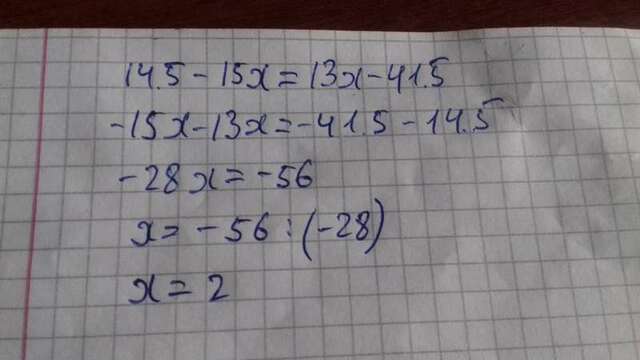 14.5 - 15x = 13x - 41.5
-15x - 13x = -41.5 - 14.5
-28x = -56
x = -56 : (-28)
x = 2